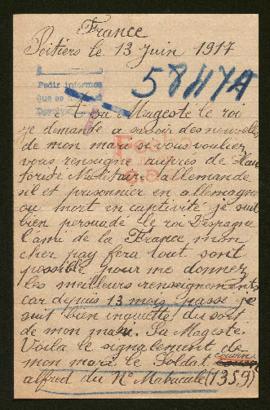 France
Poitiers le 13 Juin 1917
58117A
Pedir informes
et ou Mageste le roi
je demande a savoir des nouvelles
de mon mari se vous voulier
vous renseigné auprès de
allemande
sil et prisonnier en allemagne
ou mort en captivité je suit
bien persuadé le roi D'espagne
l'ami de la France mon
cher pay fera tout sont
possible pour me donner
les meilleurs renseignements
car depuis 13 mois passé je
suit bien inquète du sort
de mon mari. Sa Mageste
Voila le signalement de
mon mari le Soldat
alfred du N° Mabucale (1359)